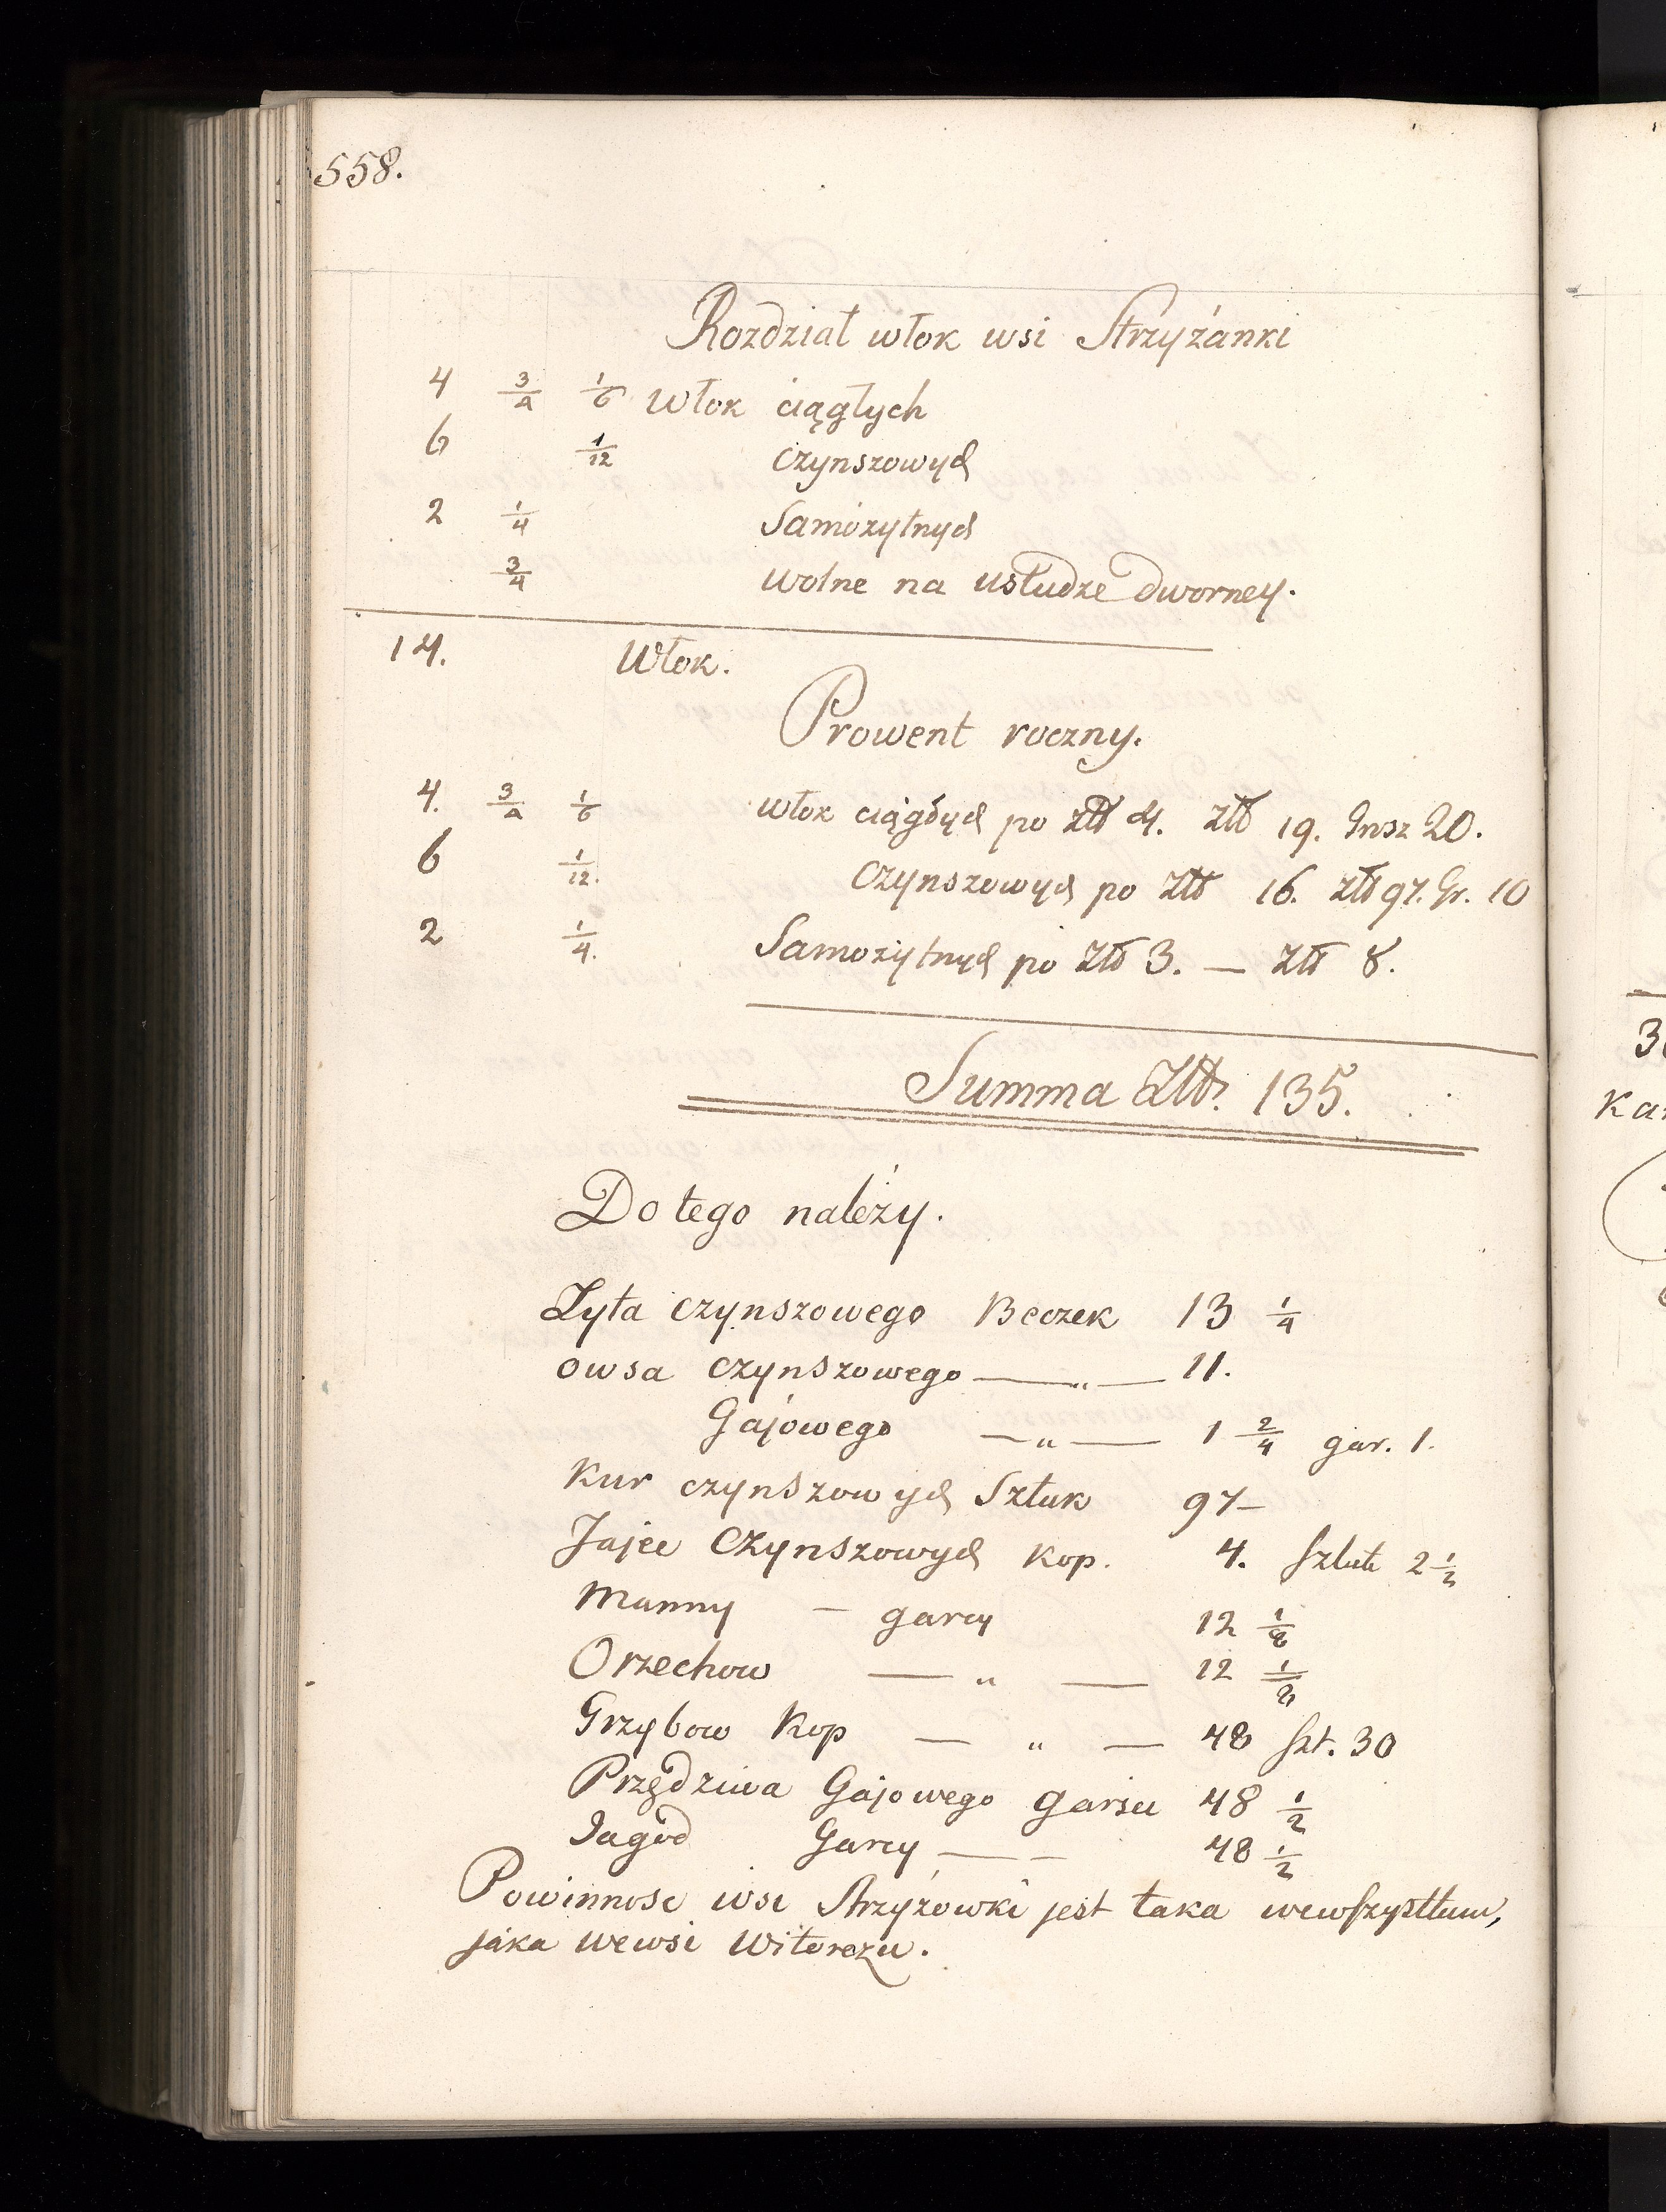 558.
Rozdział włok wsi Strzyżanki
4 3/4 1/6 Włok ciągłych
6 1/12 czynszowych
2 1/4 Samożytnych
3/4 wolne na usłudze dworney.
14. Włok.
Prowent roczny.
4. 3/4 1/6 włok ciągłych po złł 4. złł 19. Grosz 20.
6 1/12. czynszowych po złł 16. złł 97. Gr. 10
2 1/4. Samożytnych po złł 3. — złł 8.
Summa Złł. 135.
Do tego należy.
Żyta czynszowego Beczek 13 1/4
owsa czynszowego — " — 11.
Gajowego — " — 1 2/4 gar. 1.
Kur czynszowych Sztuk 97 –
Jajec Czynszowych kop. 4. sztuk 2 1/2
Manny — garcy 12 1/8
Orzechow — " — 12 1/2
Grzybow Kop — " — 48 szt. 30
Przędziwa Gajowego garsci 48 1/2
Jagód Garcy — — 48 1/2
Powinnosc wsi Strzyżowki jest taka wewszystkim,
jaka wewsi Witorożu.
3
Ka